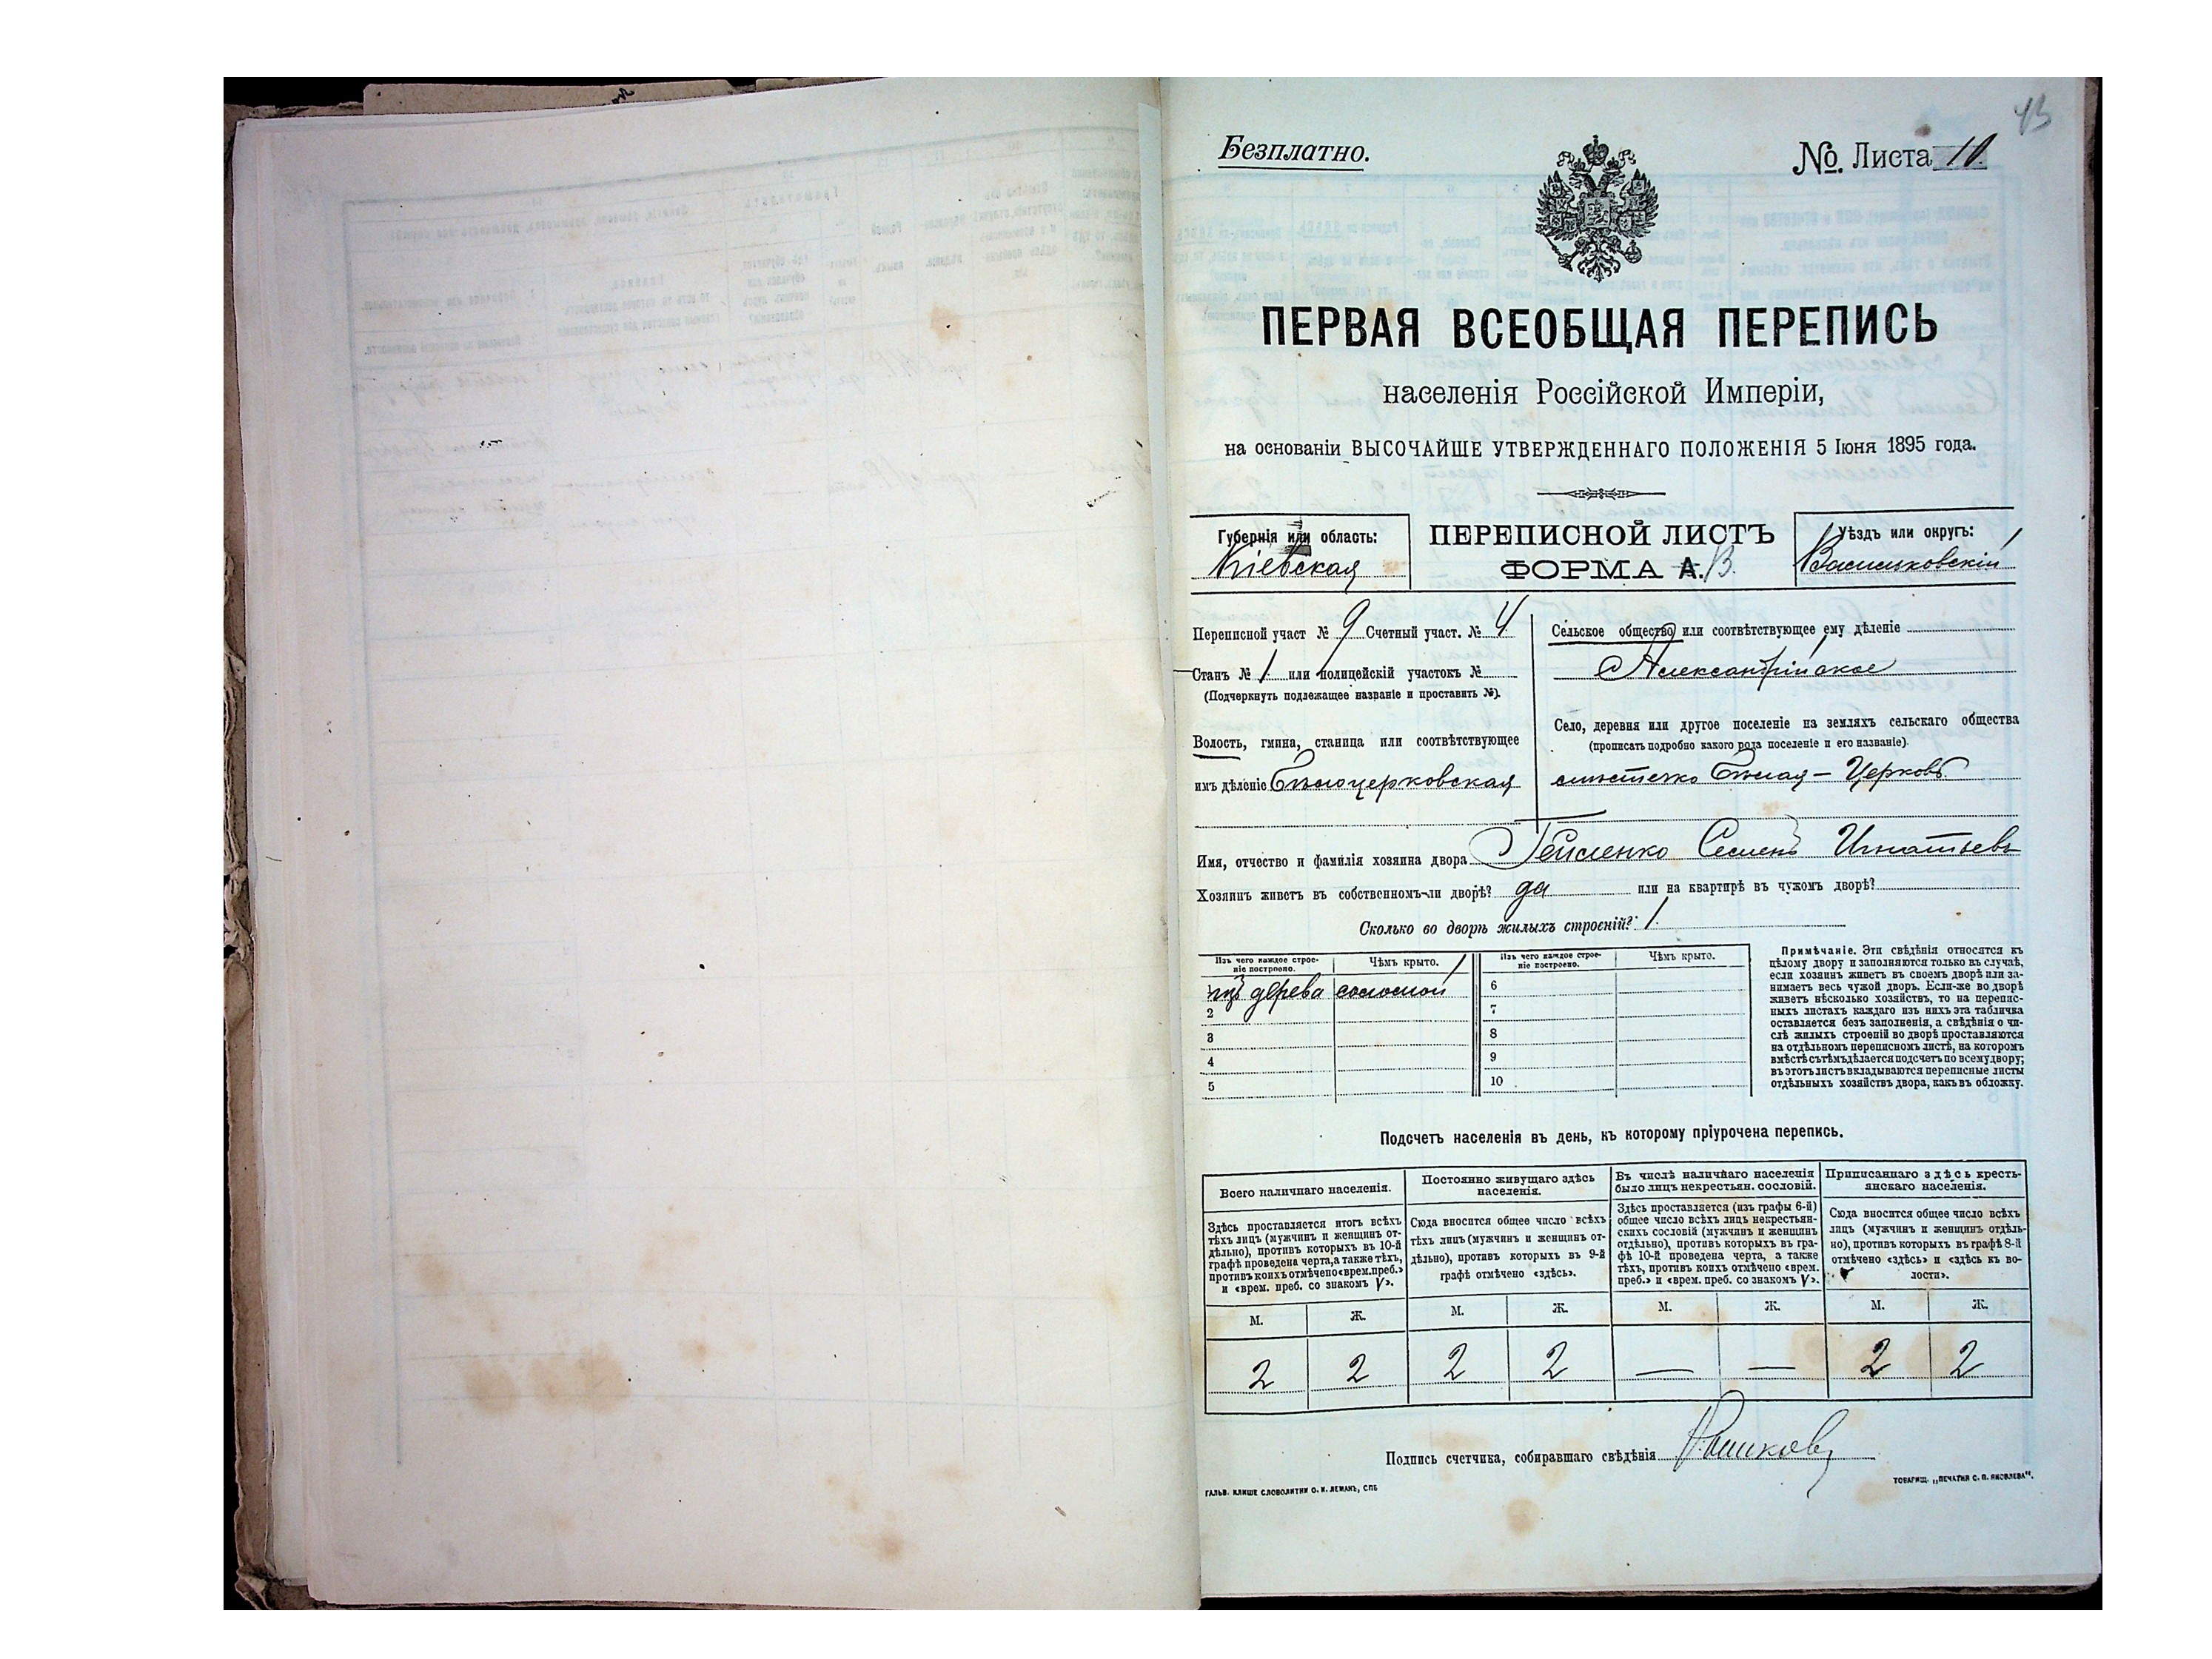 43
Безплатно.
№ Листа 10.
ПЕРВАЯ ВСЕОБЩАЯ ПЕРЕПИСЬ
населенія Россійской Имперіи,
на основаніи ВЫСОЧАЙШЕ УТВЕРЖДЕННАГО ПОЛОЖЕНІЯ 5 Іюня 1895 года.
Губернія или область:
Кіевская
ПЕРЕПИСНОЙ ЛИСТЪ
ФОРМА А. В.
Уѣздъ или округъ:
Васильковскій
Переписной участ № 9 Счетный участ. № 4
Станъ № 1 или полицейскій участокъ №
(Подчеркнуть подлежащее названіе и проставить №).
Волость, гмина, станица или соотвѣтствующее
имъ дѣленіе Бѣлоцерковская
Сельское общество или соотвѣтствующее ему дѣленіе
Александрійское
Село, деревня или другое поселеніе на земляхъ сельскаго общества
(прописать подробно какого рода поселеніе и его названіе).
мѣстечко Бѣлая-Церковь
Имя, отчество и фамилія хозяина двора Гейленко Семенъ Игнатьевъ
Хозяинъ живетъ въ собственномъ-ли дворѣ? да или на квартирѣ въ чужомъ дворѣ?
Сколько во дворѣ жилыхъ строеній? 1.
Изъ чего каждое строе-
ніе построено.
Чѣмъ крыто.
Изъ чего каждое строе-
ніе построено.
Чѣмъ крыто.
изъ дерева соломой 6
2 7
3 8
4 9
5 10
Примѣчаніе. Эти свѣдѣнія относятся къ
цѣлому двору и заполняются только въ случаѣ,
если хозяинъ живетъ въ своемъ дворѣ или за-
нимаетъ весь чужой дворъ. Если-же во дворѣ
живетъ нѣсколько хозяйствъ, то на перепис-
ныхъ листахъ каждаго изъ нихъ эта табличка
оставляется безъ заполненія, а свѣдѣнія о чи-
слѣ жилыхъ строеній во дворѣ проставляются
на отдѣльномъ переписномъ листѣ, на которомъ
вмѣстѣ съ тѣмъ дѣлается подсчетъ по всему двору;
въ этотъ листъ вкладываются переписные листы
отдѣльныхъ хозяйствъ двора, какъ въ обложку.
Подсчетъ населенія въ день, къ которому пріурочена перепись.
Всего наличнаго населенія.
Здѣсь проставляется итогъ всѣхъ
тѣхъ лицъ (мужчинъ и женщинъ от-
дѣльно), противъ которыхъ въ 10-й
графѣ проведена черта, а также тѣхъ,
противъ коихъ отмѣчено «врем. преб.»
и «врем. преб. со знакомъ V».
Постоянно живущаго здѣсь
населенія.
Сюда вносится общее число всѣхъ
тѣхъ лицъ (мужчинъ и женщинъ от-
дѣльно), противъ которыхъ въ 9-й
графѣ отмѣчено «здѣсь».
Въ числѣ наличнаго населенія
было лицъ некрестьян. сословій.
Здѣсь проставляется (изъ графы 6-й)
общее число всѣхъ лицъ некрестьян-
скихъ сословій (мужчинъ и женщинъ
отдѣльно), противъ которыхъ въ гра-
фѣ 10-й проведена черта, а также
тѣхъ, противъ коихъ отмѣчено «врем.
преб.» и «врем. преб. со знакомъ V».
Приписаннаго здѣсь кресть-
янскаго населенія.
Сюда вносится общее число всѣхъ
лицъ (мужчинъ и женщинъ отдѣль-
но), противъ которыхъ въ графѣ 8-й
отмѣчено «здѣсь» и «здѣсь къ во-
лости».
М. Ж. М. Ж. М. Ж. М. Ж.
2 2 2 2 — — 2 2
Подпись счетчика, собиравшаго свѣдѣнія
ГАЛЬВ. КЛИШЕ СЛОВОЛИТНИ О. И. ЛЕМАНЪ, СПБ
ТОВАРИЩ. „ПЕЧАТНЯ С. П. ЯКОВЛЕВА".